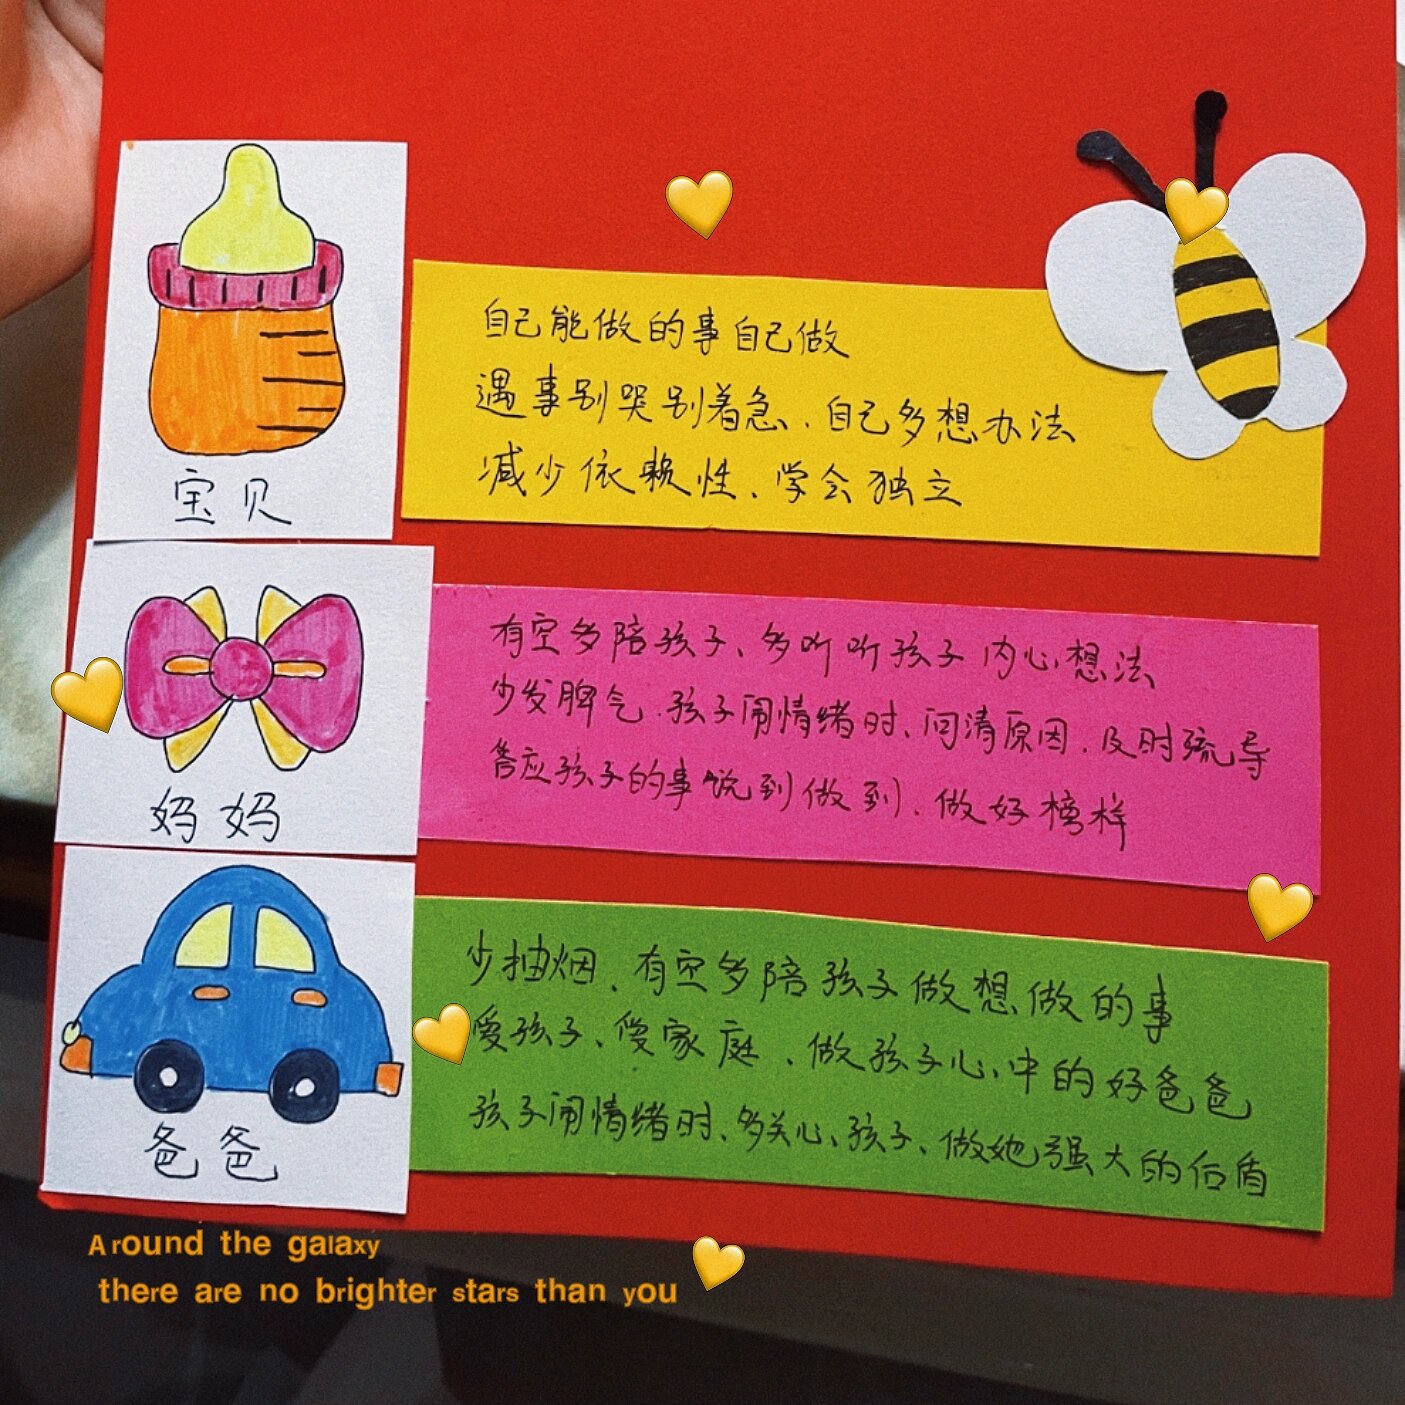 宝贝
自己能做的事自己做
遇事别哭别着急、自己多想办法
减少依赖性、学会独立
妈妈
有空多陪孩子、多听听孩子内心想法
少发脾气、孩子闹情绪时、问清原因、及时疏导
答应孩子的事说到做到、做好榜样
爸爸
少抽烟、有空多陪孩子做想做的事
爱孩子、爱家庭、做孩子心中的好爸爸
孩子闹情绪时、多关心孩子、做她强大的后盾
Around the galaxy
there are no brighter stars than you